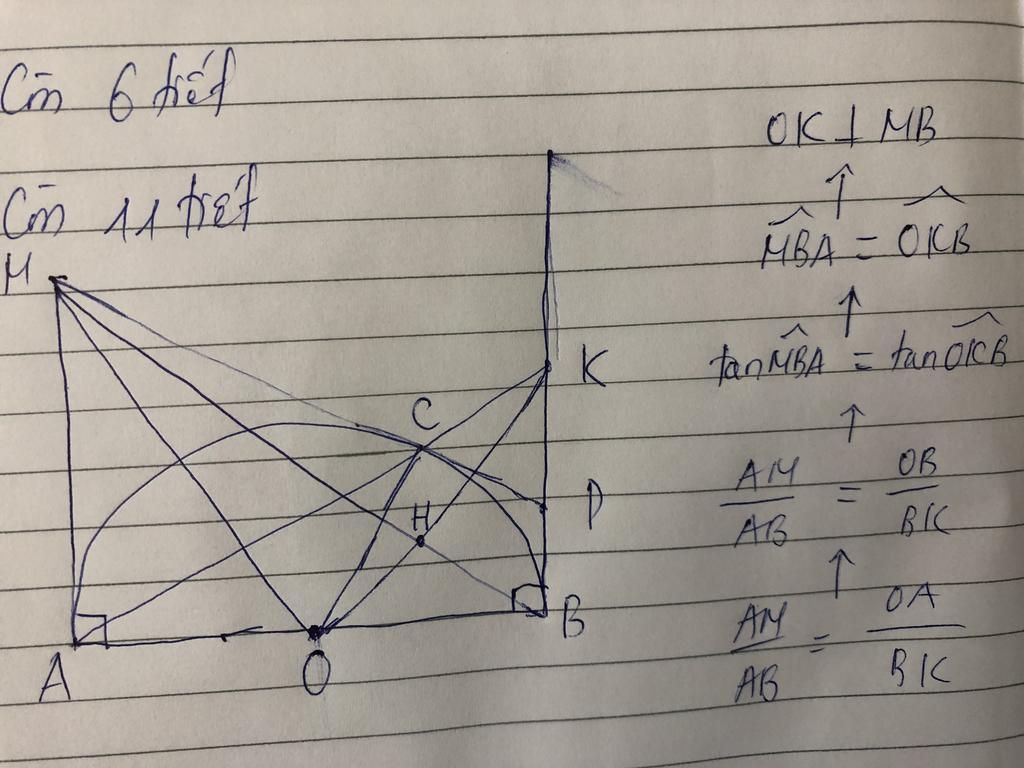 Còn 6 tiết
Còn 11 tiết
M
C
K
H
P
A
O
B
OK ⊥ MB
↑
\widehat{MBA} = \widehat{OKB}
↑
tan\widehat{MBA} = tan\widehat{OKB}
↑
AM/AB = OB/BK
↑
AM/AB = OA/BK